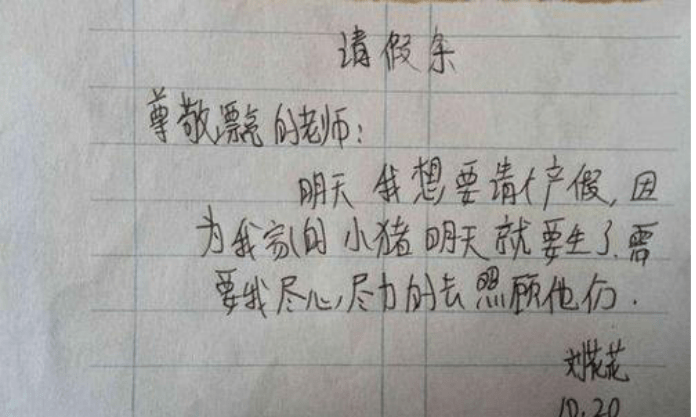 请假条
尊敬漂亮的老师：
明天我想要请个产假，因
为我家的小猪明天就要生了，需
要我尽心，尽力的去照顾他们．
刘花花
10.20